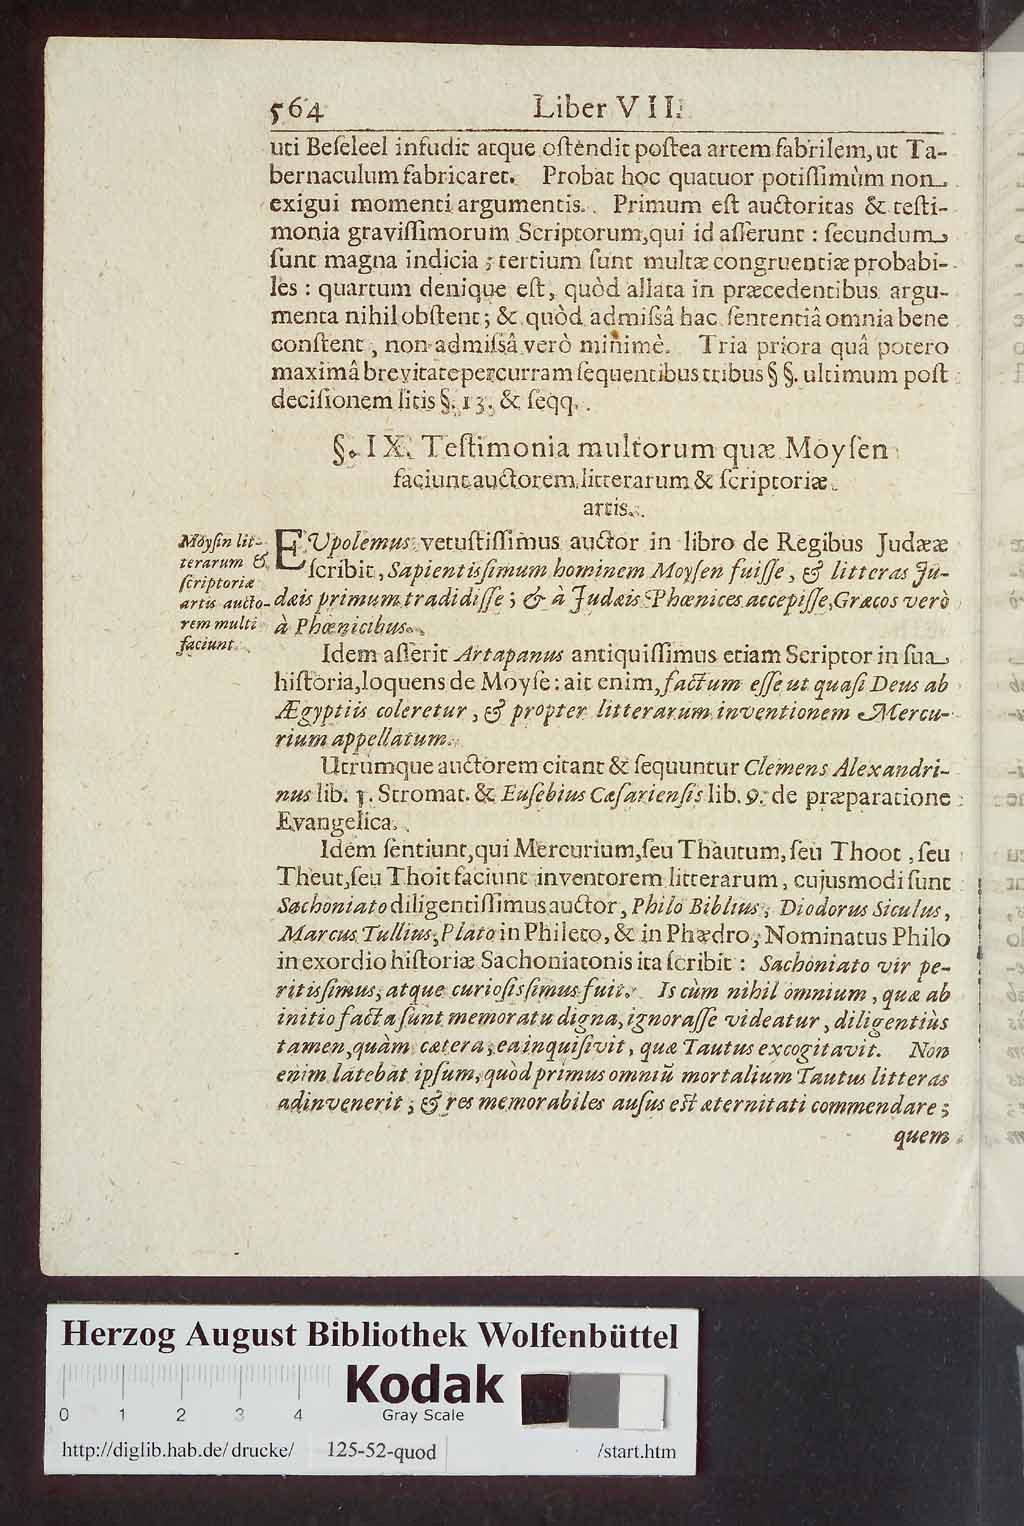 564 Liber VII.
uti Beſeleel infudit atque oſtendit poſtea artem fabrilem, ut Ta-
bernaculum fabricaret. Probat hoc quatuor potiſſimùm non
exigui momenti argumentis. Primum eſt auctoritas & teſti-
monia graviſſimorum Scriptorum, qui id aſſerunt : ſecundum
ſunt magna indicia ; tertium ſunt multæ congruentiæ probabi-
les : quartum denique eſt, quòd allata in præcedentibus argu-
menta nihil obſtent ; & quòd admiſsâ hac ſententiâ omnia bene
conſtent, non admiſsâ verò minimè. Tria priora quâ potero
maximâ brevitate percurram ſequentibus tribus §§. ultimum poſt
deciſionem litis §. 13. & ſeqq.
§. IX. Teſtimonia multorum quæ Moyſen
faciunt auctorem litterarum & ſcriptoriæ
artis.
Moyſin lit-
terarum &
ſcriptoriæ
artis aucto-
rem multi
faciunt.
EUpolemus vetuſtiſſimus auctor in libro de Regibus Judææ
ſcribit, Sapientiſſimum hominem Moyſen fuiſſe, & litteras Ju-
dæis primum tradidiſſe ; & à Judæis Phœnices accepiſſe, Græcos verò
à Phœnicibus.
Idem aſſerit Artapanus antiquiſſimus etiam Scriptor in ſua
hiſtoria, loquens de Moyſe : ait enim, factum eſſe ut quaſi Deus ab
Ægyptiis coleretur, & propter litterarum inventionem Mercu-
rium appellatum.
Utrumque auctorem citant & ſequuntur Clemens Alexandri-
nus lib. 1. Stromat. & Euſebius Cæſarienſis lib. 9. de præparatione
Evangelica.
Idem ſentiunt, qui Mercurium, ſeu Thautum, ſeu Thoot, ſeu
Theut, ſeu Thoit faciunt inventorem litterarum, cujusmodi ſunt
Sachoniato diligentiſſimus auctor, Philo Biblius, Diodorus Siculus,
Marcus Tullius, Plato in Phileto, & in Phædro, Nominatus Philo
in exordio hiſtoriæ Sachoniatonis ita ſcribit : Sachoniato vir pe-
ritiſſimus, atque curioſiſſimus fuit. Is cùm nihil omnium, quæ ab
initio facta ſunt memoratu digna, ignoraſſe videatur, diligentiùs
tamen, quàm cætera, ea inquiſivit, quæ Tautus excogitavit. Non
enim latebat ipſum, quòd primus omniũ mortalium Tautus litteras
adinvenerit ; & res memorabiles auſus eſt æternitati commendare ;
quem
Herzog August Bibliothek Wolfenbüttel
0 1 2 3 4
Kodak
Gray Scale
http://diglib.hab.de/drucke/ 125-52-quod /start.htm